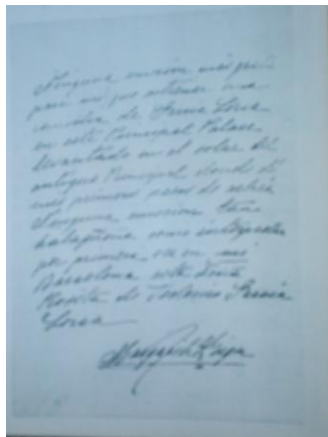 Ninguna emoción más grata
para mí que estrenar una
comedia de García Lorca
en este Principal Palace
levantado en el solar del
antiguo Principal donde di
mis primeros pasos de actriz
Ninguna emoción tan
como interpretar
por primera vez en mi
Barcelona esta Doña
Rosita de Federico García
Lorca
Margarita Xirgu